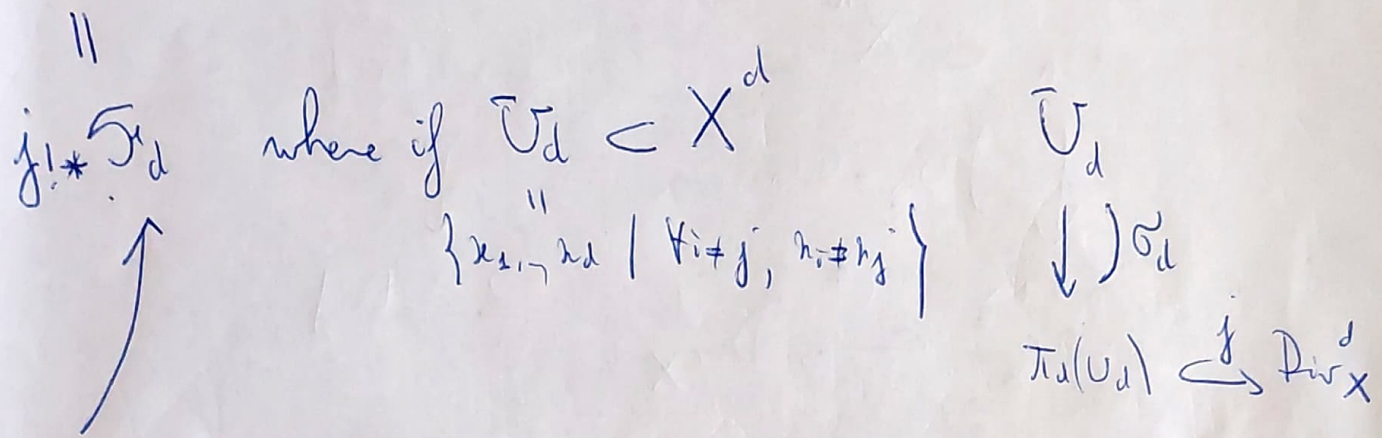 ||
j!* ℱ_d where if U_d ⊂ X^d U_d
|| {x_1, ..., x_d | ∀i≠j, x_i≠x_j} ↓ ) σ_d
π_d(U_d) ↪^j Div^d_X